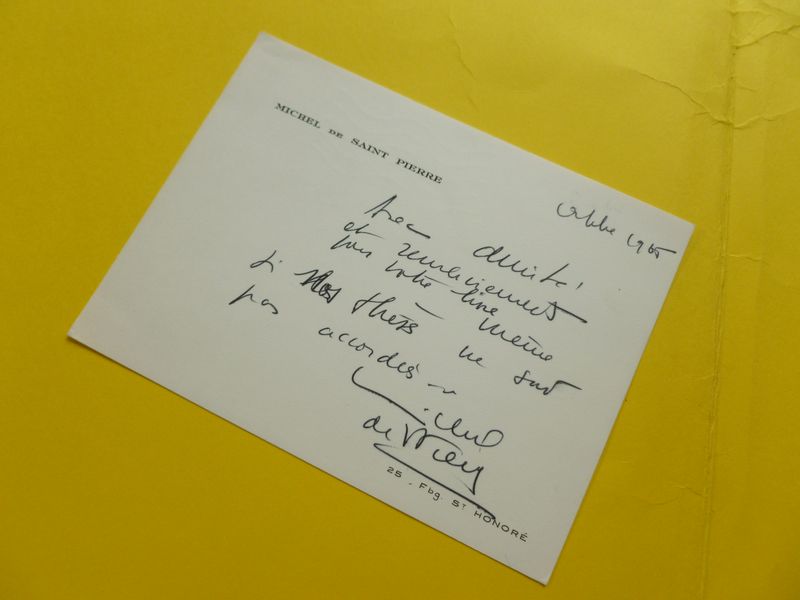 MICHEL DE SAINT PIERRE
Octobre 1965
Avec amitié,
et remerciements
pour votre livre
— même
si nos thèses ne sont
pas accordées ~
Michel
de St Pierre
25, Fbg. ST HONORÉ